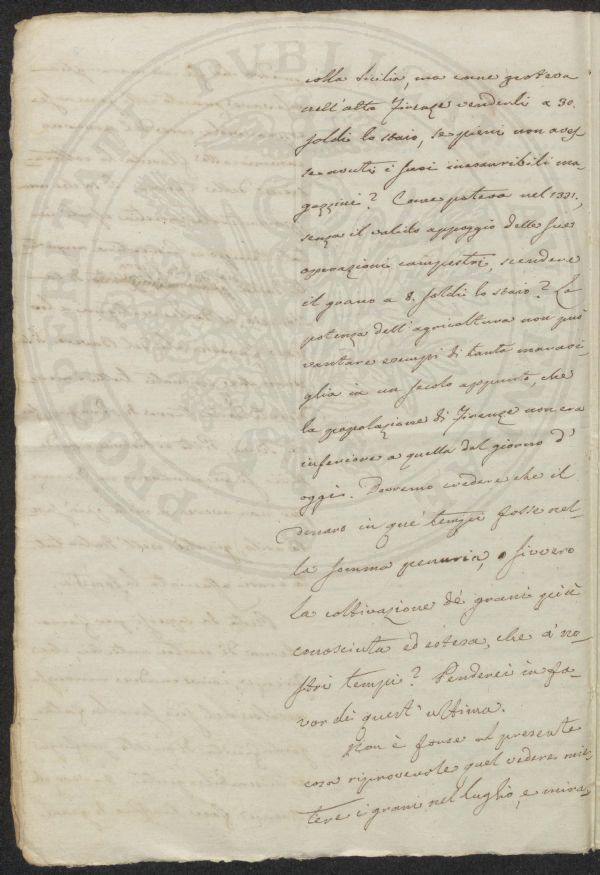 colla Sicilia, ma come poteva
nell'alto Firenze venderli a 30.
soldi lo staio, se pieni non aves-
se avuti i suoi inesauribili ma-
gazzini? Come poteva nel 1331,
senza il valido appoggio delle sue
operazioni campestri, scendere
il grano a 8. soldi lo staio? La
potenza dell'agricoltura non può
vantare esempi di tanta maravi-
glia in un secolo appunto, che
la popolazione di Firenze non era
inferiore a quella del giorno d'
oggi. Dovremo credere che il
denaro in que' tempi fosse nel-
la somma penuria, o sivvero
la coltivazione de' grani più
conosciuta ed estesa, che a' no-
stri tempi? Penderei in fa-
vor di quest'ultima.
Non è forse al presente
cosa riprovevole quel vedere mie-
tere i grani nel luglio, e mira-
PROSPERITATI PUBLICAE